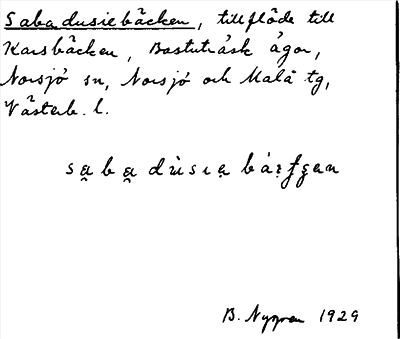 Sabadusiebäcken, tillflöde till
Korsbäcken, Bastuträsk ägor,
Norsjö sn, Norsjö och Malå tg,
Västerb. l.
B. Nygren 1929